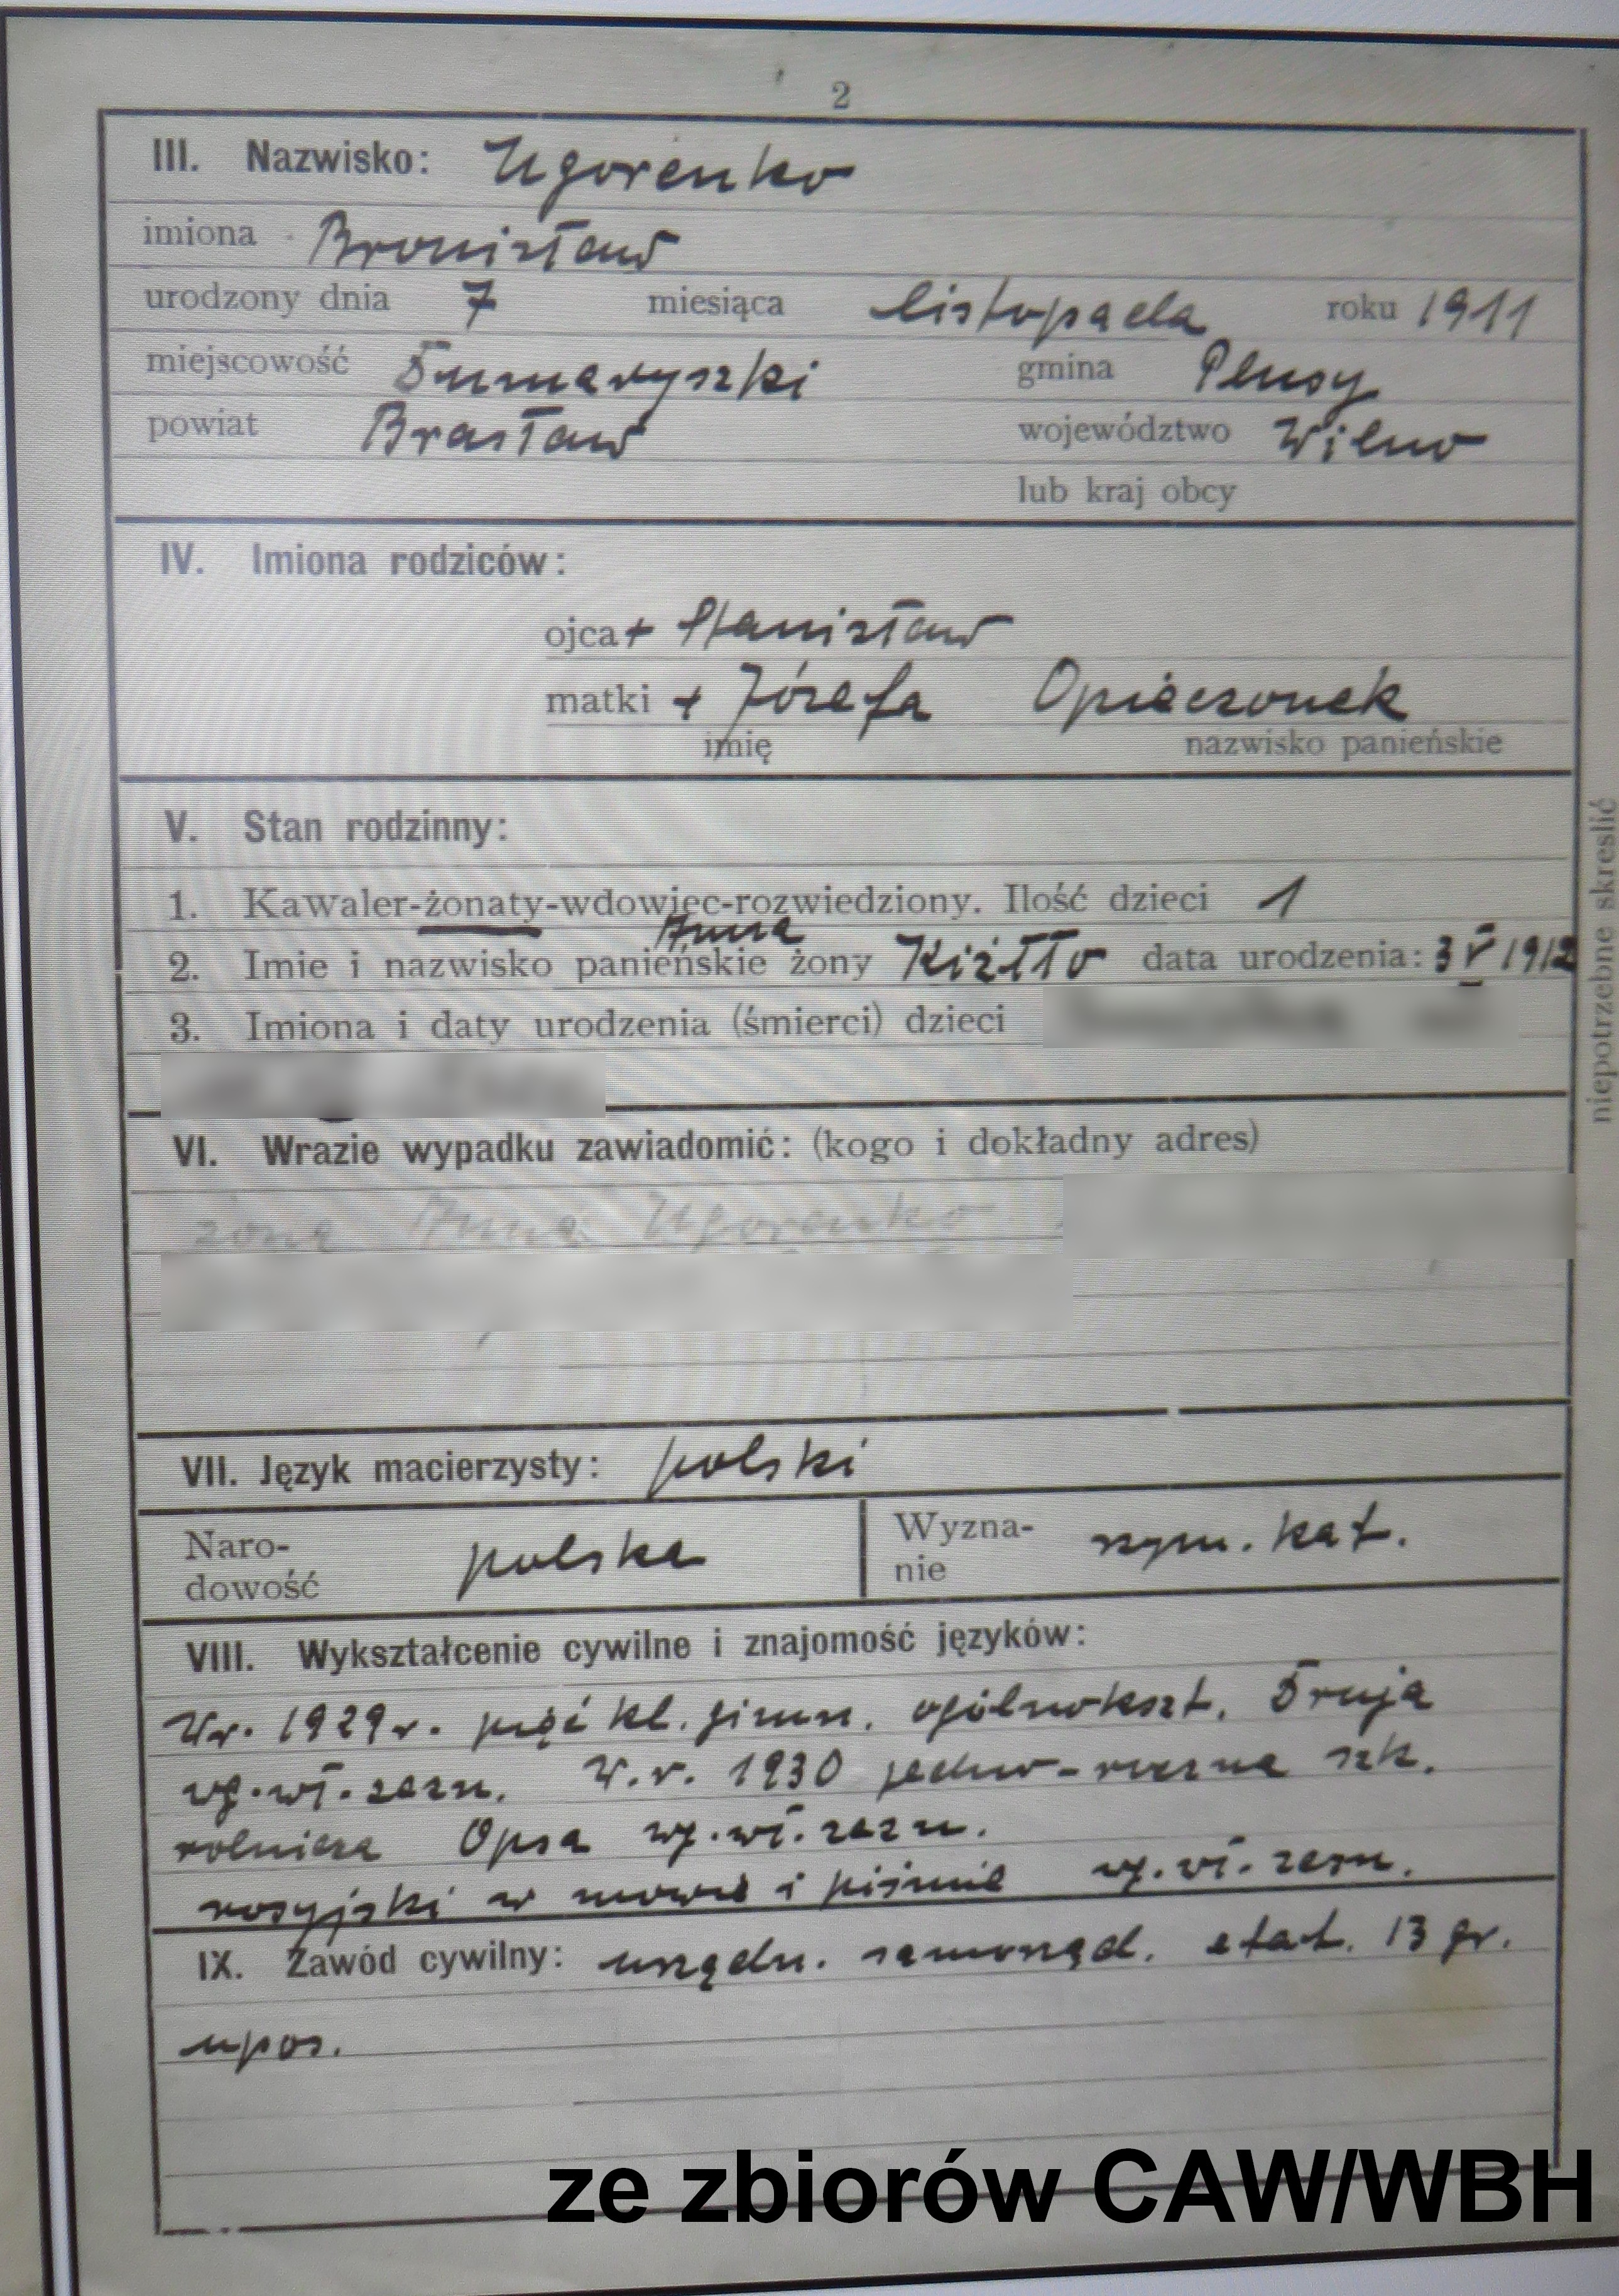 2
III. Nazwisko: Ugorenko
imiona Bronisław
urodzony dnia 7 miesiąca listopada roku 1911
miejscowość gmina Plusy
powiat Brasław województwo Wilno
lub kraj obcy
IV. Imiona rodziców:
ojca + Stanisław
matki + Józefa Opieczonek
imię nazwisko panieńskie
V. Stan rodzinny:
1. Kawaler-żonaty-wdowiec-rozwiedziony. Ilość dzieci 1
Anna
2. Imie i nazwisko panieńskie żony Kiżłło data urodzenia: 3 V 1912
3. Imiona i daty urodzenia (śmierci) dzieci
niepotrzebne skreslić
VI. Wrazie wypadku zawiadomić: (kogo i dokładny adres)
żona Anna Ugorenko
VII. Język macierzysty: polski
Naro- polska Wyzna- rzym. kat.
dowość nie
VIII. Wykształcenie cywilne i znajomość języków:
W r. 1929 r. pięć kl. gimn. ogólnokszt. Druja
wg. wł. zezn. W. r. 1930 jedno-roczna szk.
rolnicza Opsa wg. wł. zezn.
rosyjski w mowie i piśmie wg. wł. zezn.
IX. Zawód cywilny: urzędn. samorząd. etat. 13 gr.
upos.
ze zbiorów CAW/WBH